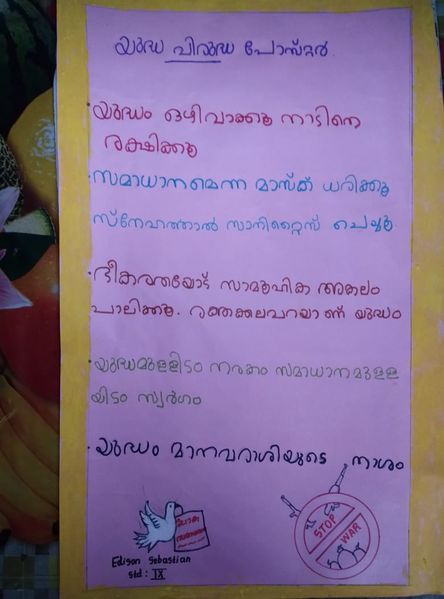 യുദ്ധ വിരുദ്ധ പോസ്റ്റർ.
· യുദ്ധം ഒഴിവാക്കൂ നാടിനെ
രക്ഷിക്കൂ
· സമാധാനമെന്ന മാസ്ക് ധരിക്കൂ
സ്നേഹത്താൽ സാനിറ്റൈസ് ചെയ്യൂ
· ഭീകരതയോട് സാമൂഹിക അകലം
പാലിക്കൂ. രക്തക്കലവറയാണ് യുദ്ധം
· യുദ്ധമുള്ളിടം നരകം സമാധാനമുള്ള
യിടം സ്വർഗം
· യുദ്ധം മാനവരാശിയുടെ നാശം
STOP
WAR
Edison Sebastian
Std: IX